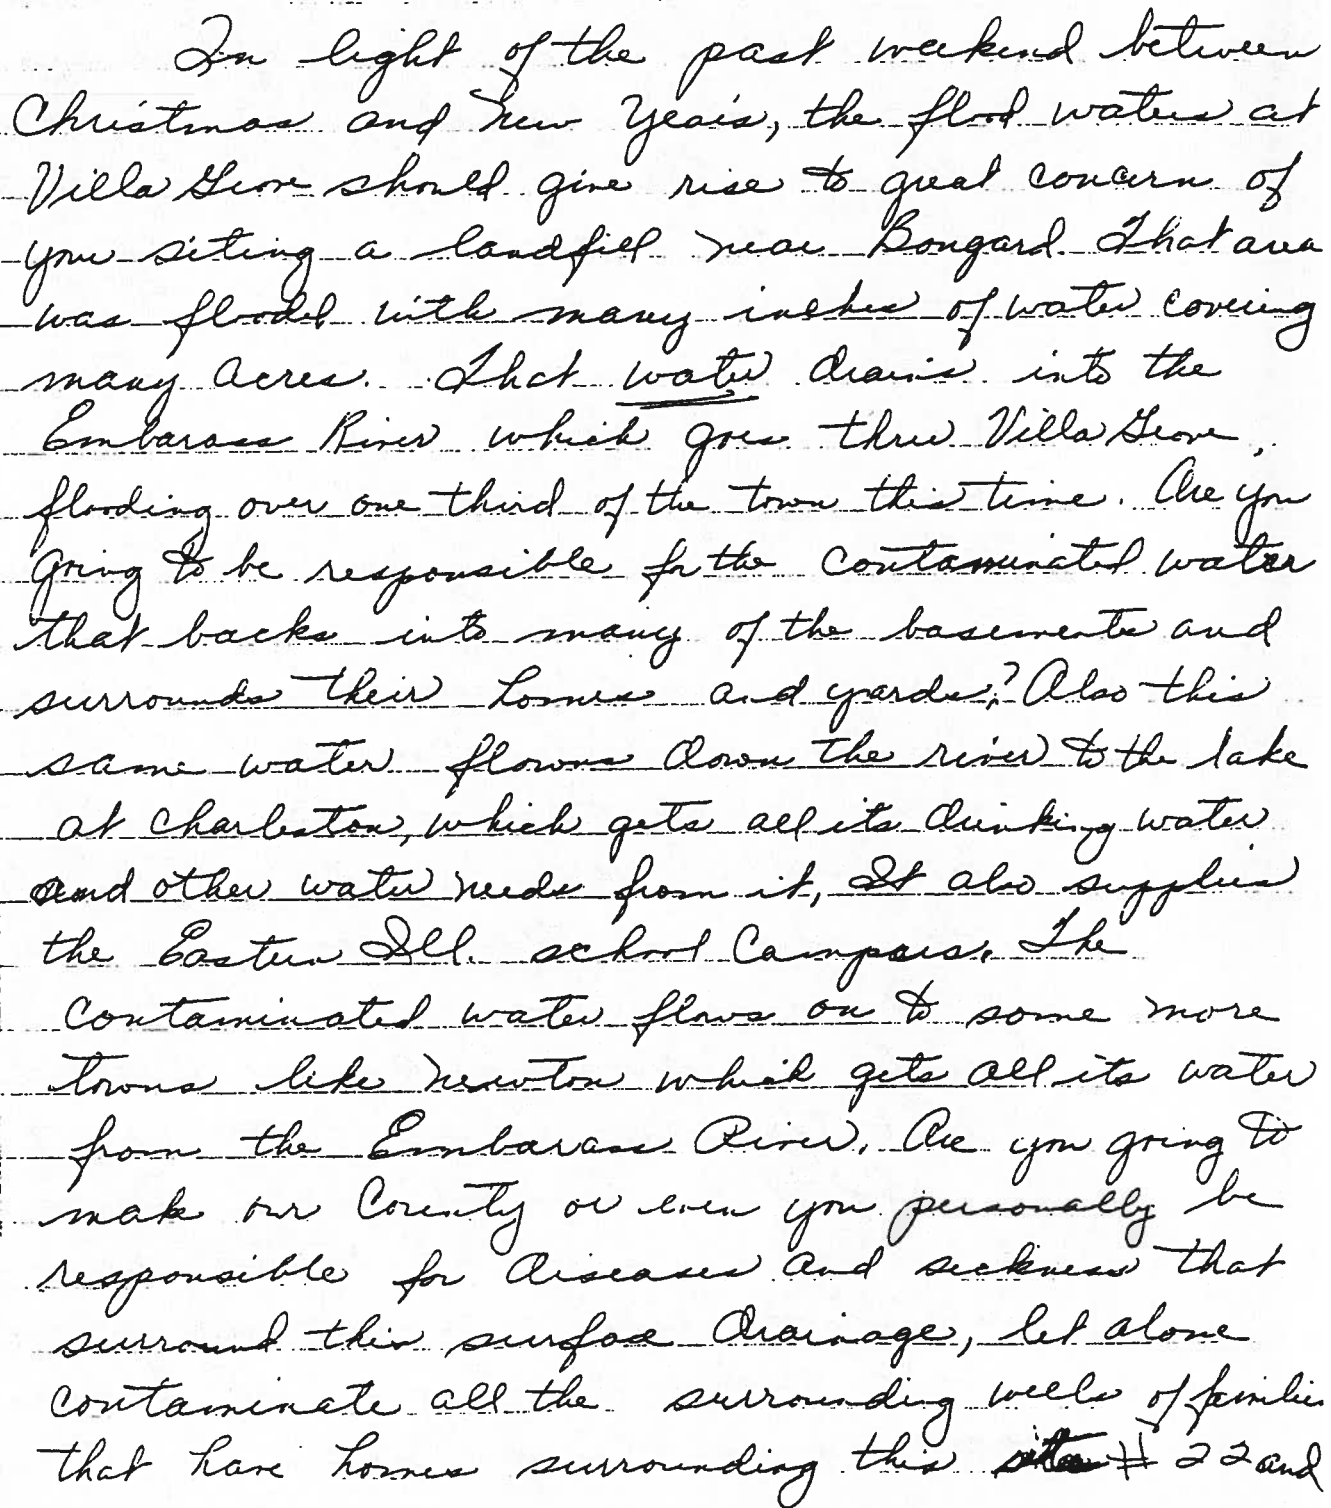 In light of the past weekend between
Christmas and New Year's, the flood waters at
Villa Grove should give rise to great concern of
you siting a landfill near Bongard. That area
was flooded with many inches of water covering
many acres. That water drains into the
Embarass River which goes thru Villa Grove,
flooding over one third of the town this time. Are you
going to be responsible for the contaminated water
that backs into many of the basements and
surrounds their homes and yards? Also this
same water flowns down the river to the lake
at Charleston, which gets all its drinking water
and other water needs from it, It also supplies
the Eastern Ill. school Campus. The
contaminated water flows on to some more
towns like Newton which gets all its water
from the Embarass River. Are you going to
make our County or even you personally be
responsible for diseases and sickness that
surround this surface drainage, let alone
contaminate all the surrounding wells of families
that have homes surrounding this site # 22 and